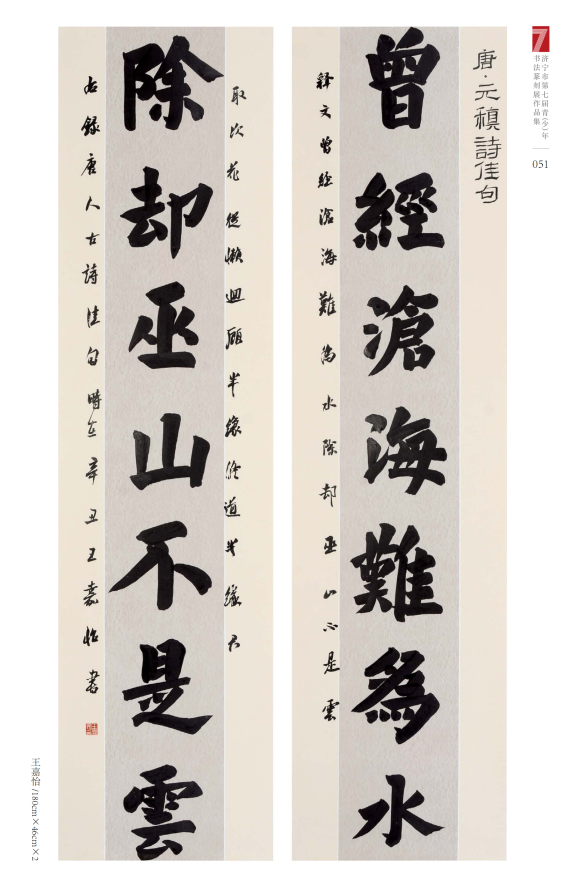 7
济宁市第七届青(少)年
书法篆刻展作品集
051
唐·元稹詩佳句
曾經滄海難為水
釋文曾經滄海難為水除却巫山不是雲
取次花從懶迴顧半緣修道半緣君
除却巫山不是雲
右録唐人古詩佳句時在辛丑王嘉怡書
王嘉怡 /180cm×46cm×2